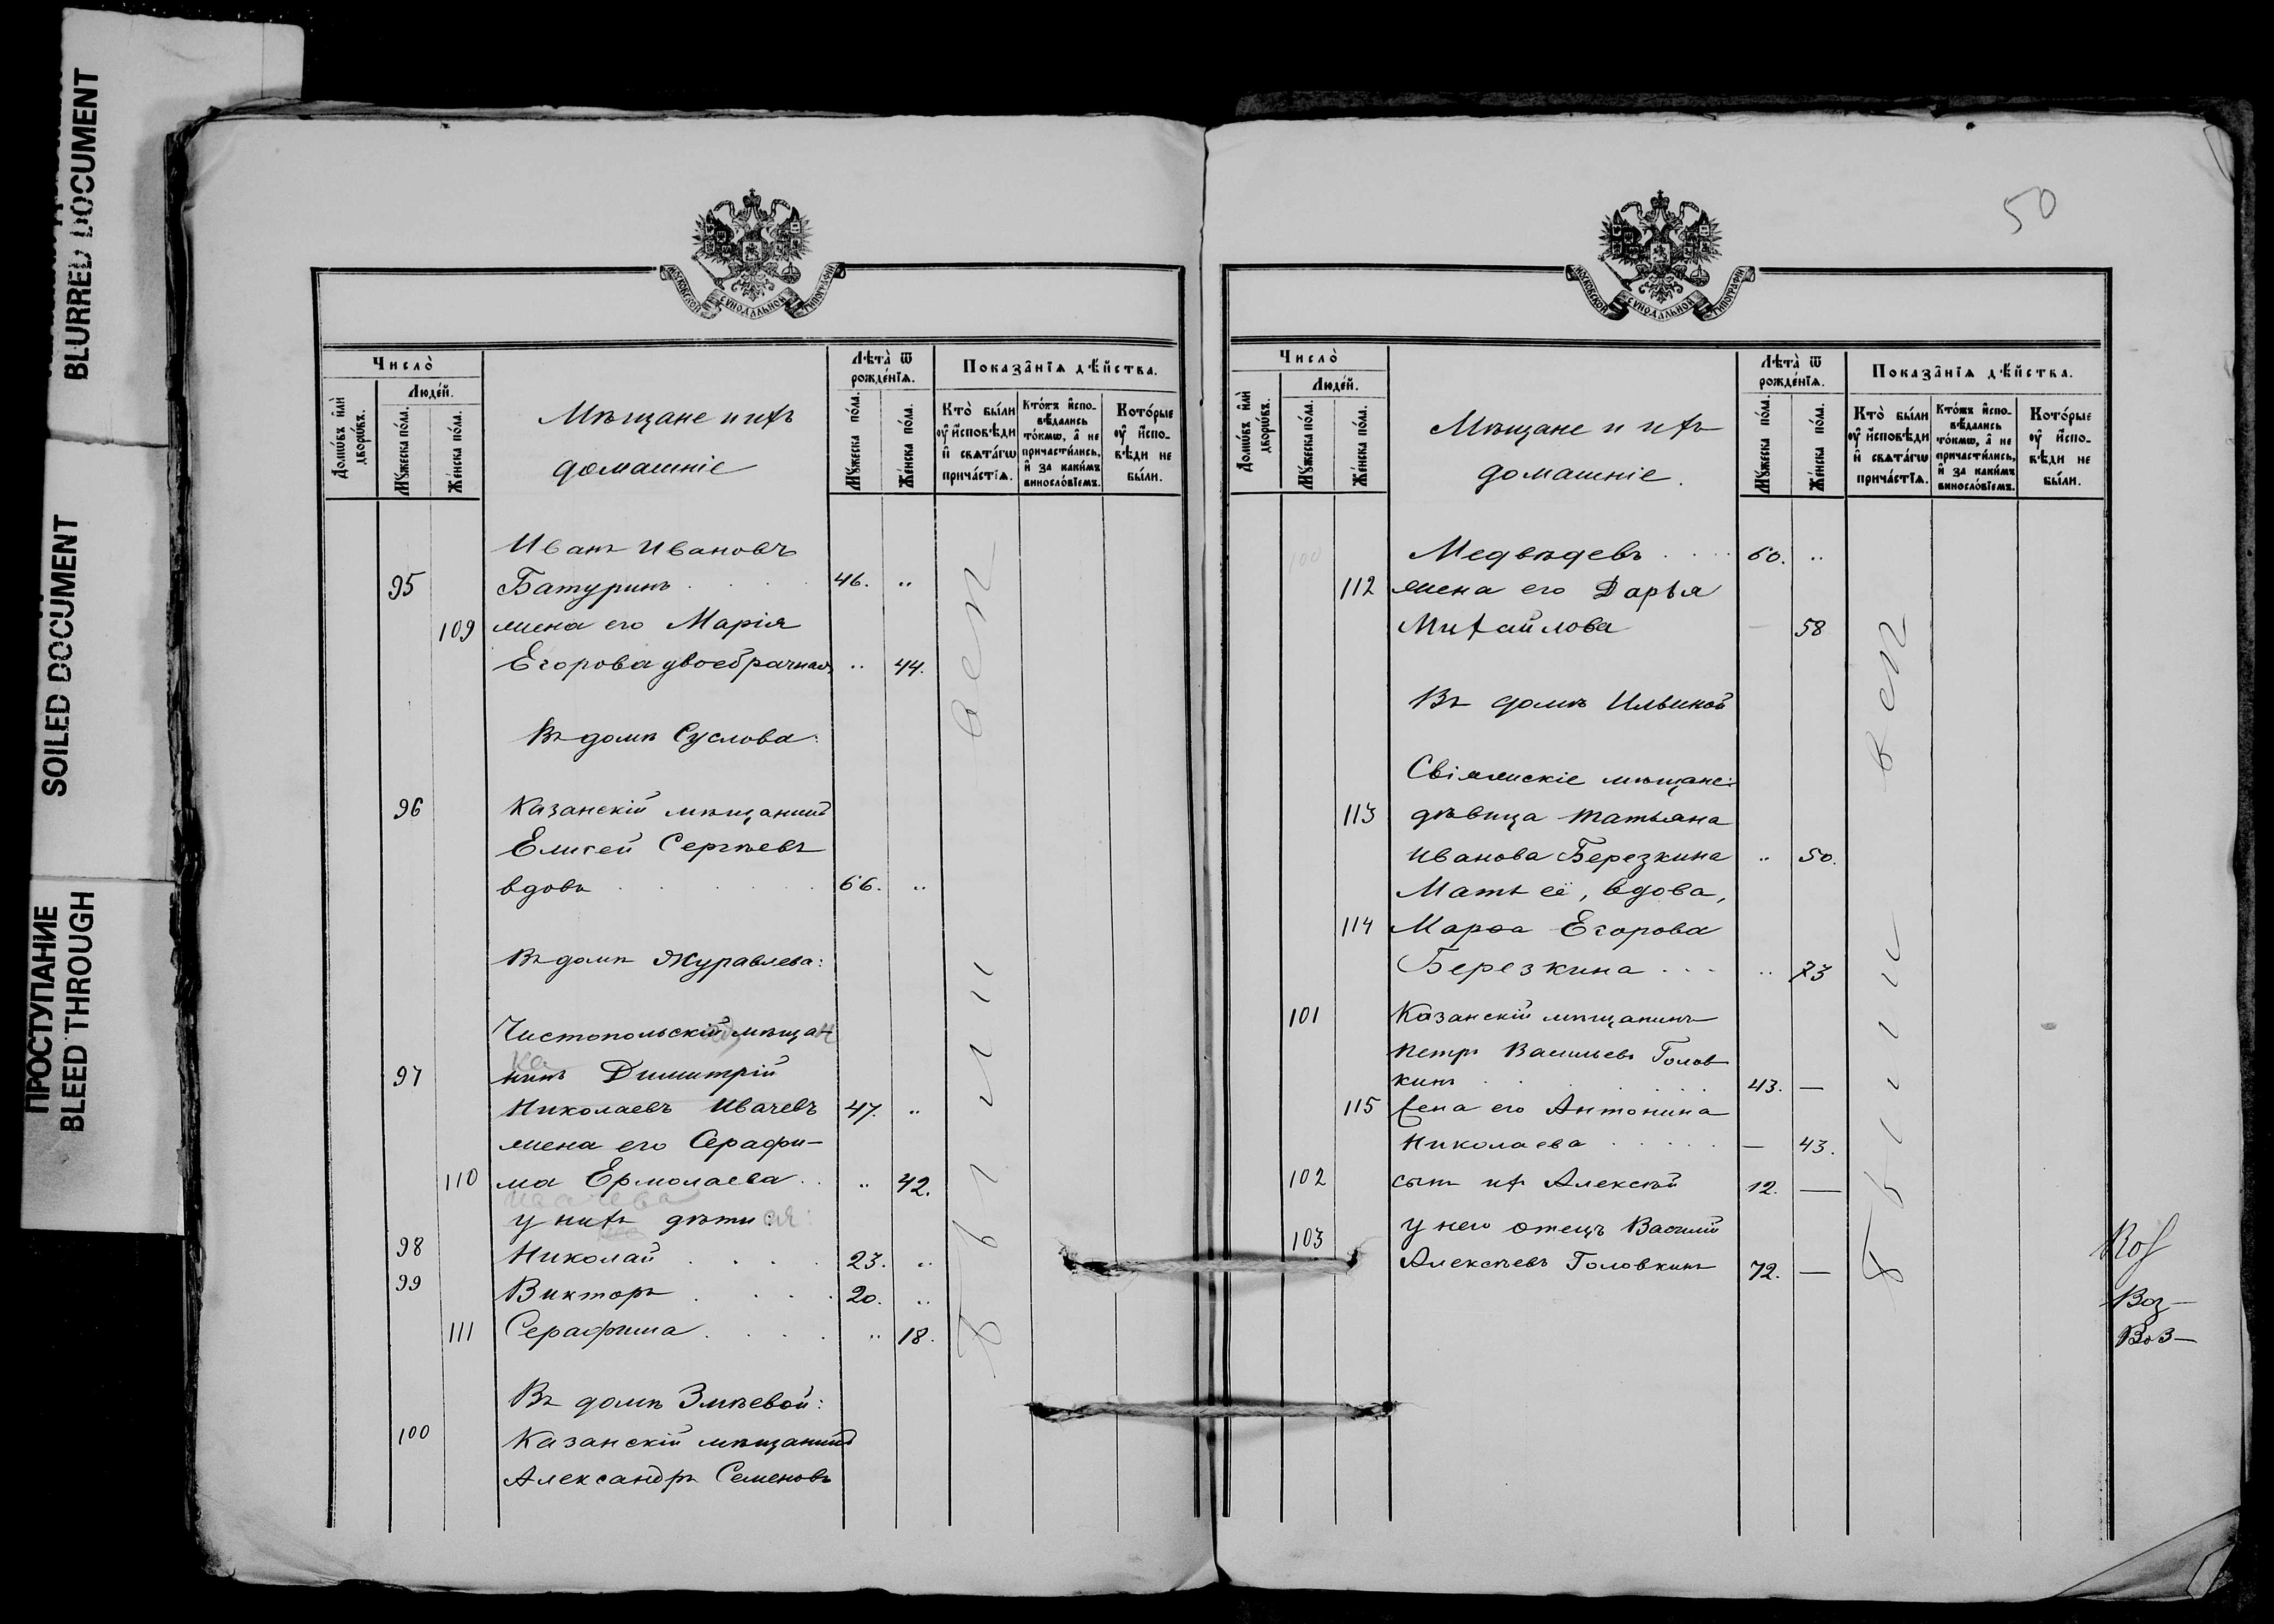 BLURRED DOCUMENT
SOILED DOCUMENT
ПРОСТУПАНИЕ
BLEED THROUGH
МОСКОВСКОЙ СѴНОДАЛЬНОЙ ТИПОГРАФІИ
Число̀
Люде́й.
Домѡ́въ и҆лѝ дворѡ́въ.
Мꙋ́жеска по́ла.
Же́нска по́ла.
Мѣщане и ихъ
домашніе
Лѣта̀ ѿ рожде́нїѧ.
Мꙋ́жеска по́ла.
Же́нска по́ла.
Показа̑нїѧ дѣ́йства.
Кто̀ бы́ли ᲂу҆ и҆сповѣ́ди и҆ свѧта́гѡ прича́стїѧ.
Кто́жъ и҆сповѣ́дались то́кмѡ, а҆ не причасти́лись, и҆ за каки́мъ винослóвїемъ.
Кото́рые ᲂу҆ и҆сповѣ́ди не бы́ли.
Иванъ Ивановъ
95 Батуринъ 46. „
109 жена его Марія
Егорова двоебрачная „ 44.
Въ домѣ Суслова:
96 Казанскій мѣщанинъ
Елисей Сергѣевъ
вдовъ 66. „
Въ домѣ Журавлева:
Чистопольскій мѣща
97 нинъ Димитрій
Николаевъ Ивачевъ 47. „
жена его Серафи-
110 ма Ермолаева „ 42.
Ивачева
у нихъ дѣти:
98 Николай 23. „
99 Викторъ 20. „
111 Серафима „ 18.
Въ домѣ Змѣевой:
100 Казанскій мѣщанинъ
Александръ Семеновъ
были
вси
50
МОСКОВСКОЙ СѴНОДАЛЬНОЙ ТИПОГРАФІИ
Число̀
Люде́й.
Домѡ́въ и҆лѝ дворѡ́въ.
Мꙋ́жеска по́ла.
Же́нска по́ла.
Мѣщане и ихъ
домашніе.
Лѣта̀ ѿ рожде́нїѧ.
Мꙋ́жеска по́ла.
Же́нска по́ла.
Показа̑нїѧ дѣ́йства.
Кто̀ бы́ли ᲂу҆ и҆сповѣ́ди и҆ свѧта́гѡ прича́стїѧ.
Кто́жъ и҆сповѣ́дались то́кмѡ, а҆ не причасти́лись, и҆ за каки́мъ винослóвїемъ.
Кото́рые ᲂу҆ и҆сповѣ́ди не бы́ли.
100 Медвѣдевъ 60. „
112 жена его Дарья
Михайлова — 58
Въ домѣ Ильиной
Свіяжскіе мѣщане:
113 дѣвица Татьяна
Иванова Березкина „ 50.
Мать её, вдова,
114 Марѳа Егорова
Березкина „ 73
101 Казанскій мѣщанинъ
Петръ Васильевъ Голов
кинъ 43. —
115 Жена его Антонина
Николаева — 43.
102 сынъ ихъ Алексѣй 12. —
103 у него отецъ Василій
Алексѣевъ Головкинъ 72. —
были
вси
Воз—
Воз—